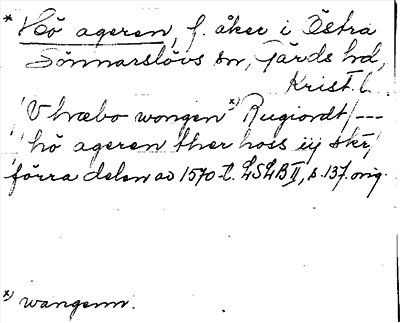 * Hö ageren, f. åker i Östra
Sönnarslövs sn, Gärds hd,
Krist. l.
'V hæbo wongen x) Rugiordt/---
'hö ageren ther hoss iij skr,'
förra delen av 1570-t. LSLB II, s. 137. orig.
x) wangenn.